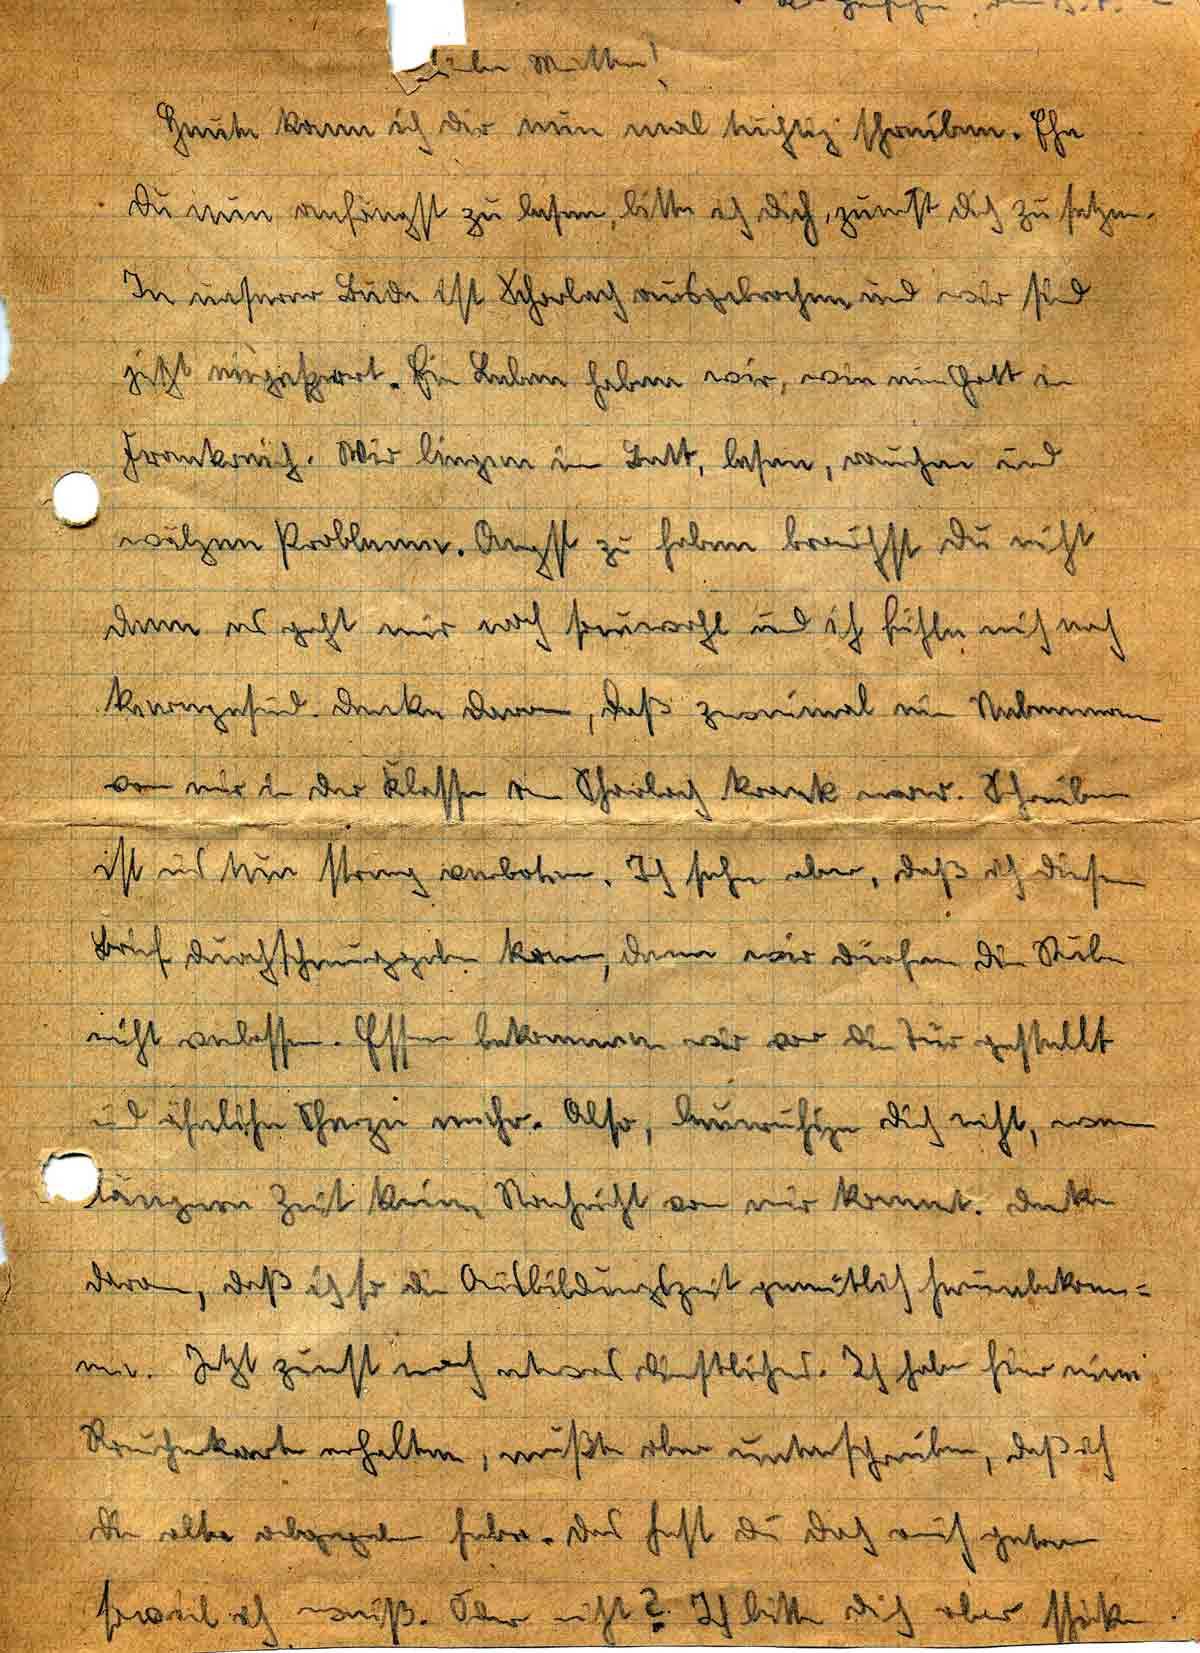 Liebe Mutter!
Heute kann ich dir nun mal tüchtig schreiben. Ehe
du nun anfängst zu lesen, bitte ich dich, zuerst dich zu setzen.
In unserer Bude ist Scharlach ausgebrochen und wir sind
jetzt eingesperrt. Ein Leben haben wir, wie ein Gott in
Frankreich. Wir liegen im Bett, lesen, rauchen und
wälzen Probleme. Angst zu haben brauchst du nicht
denn es geht mir noch sauwohl und ich fühle mich noch
kerngesund. Denke daran, daß zweimal ein Nebenmann
von mir in der Klasse an Scharlach krank war. Schreiben
ist uns nun streng verboten. Ich sehe aber, daß ich diesen
Brief durchschmuggeln kann, denn wir dürfen die Stube
nicht verlassen. Essen bekommen wir vor die Tür gestellt
und ähnliche Scherze mehr. Also, beunruhige dich nicht, wenn
längere Zeit keine Nachricht von mir kommt. Denke
daran, daß ich so die Ausbildungszeit gemütlich herumbekom=
me. Jetzt zuerst noch etwas dienstliches. Ich habe hier eine
Raucherkarte erhalten, mußte aber unterschreiben, daß ich
die alte abgegeben habe. Das hast du doch auch getan
soweit ich weiß. Oder nicht? Ich bitte dich aber schicke